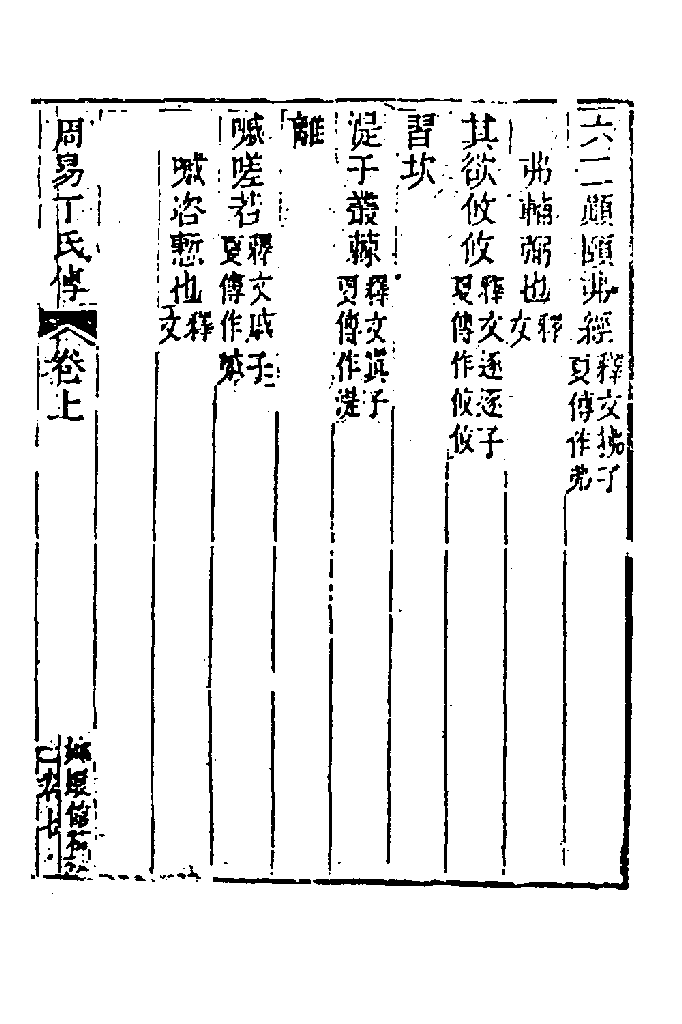 六二顛頤弗經釋文拂子夏傳作弗
弗輔弼也釋文
其欲攸攸釋文逐逐子夏傳作攸攸
習坎
湜于叢棘釋文寘子夏傳作湜
離
嘁嗟若釋文戚子夏傳作嘁
嘁咨慙也釋文
周易丁氏傳
卷上
嫏嬛館補校